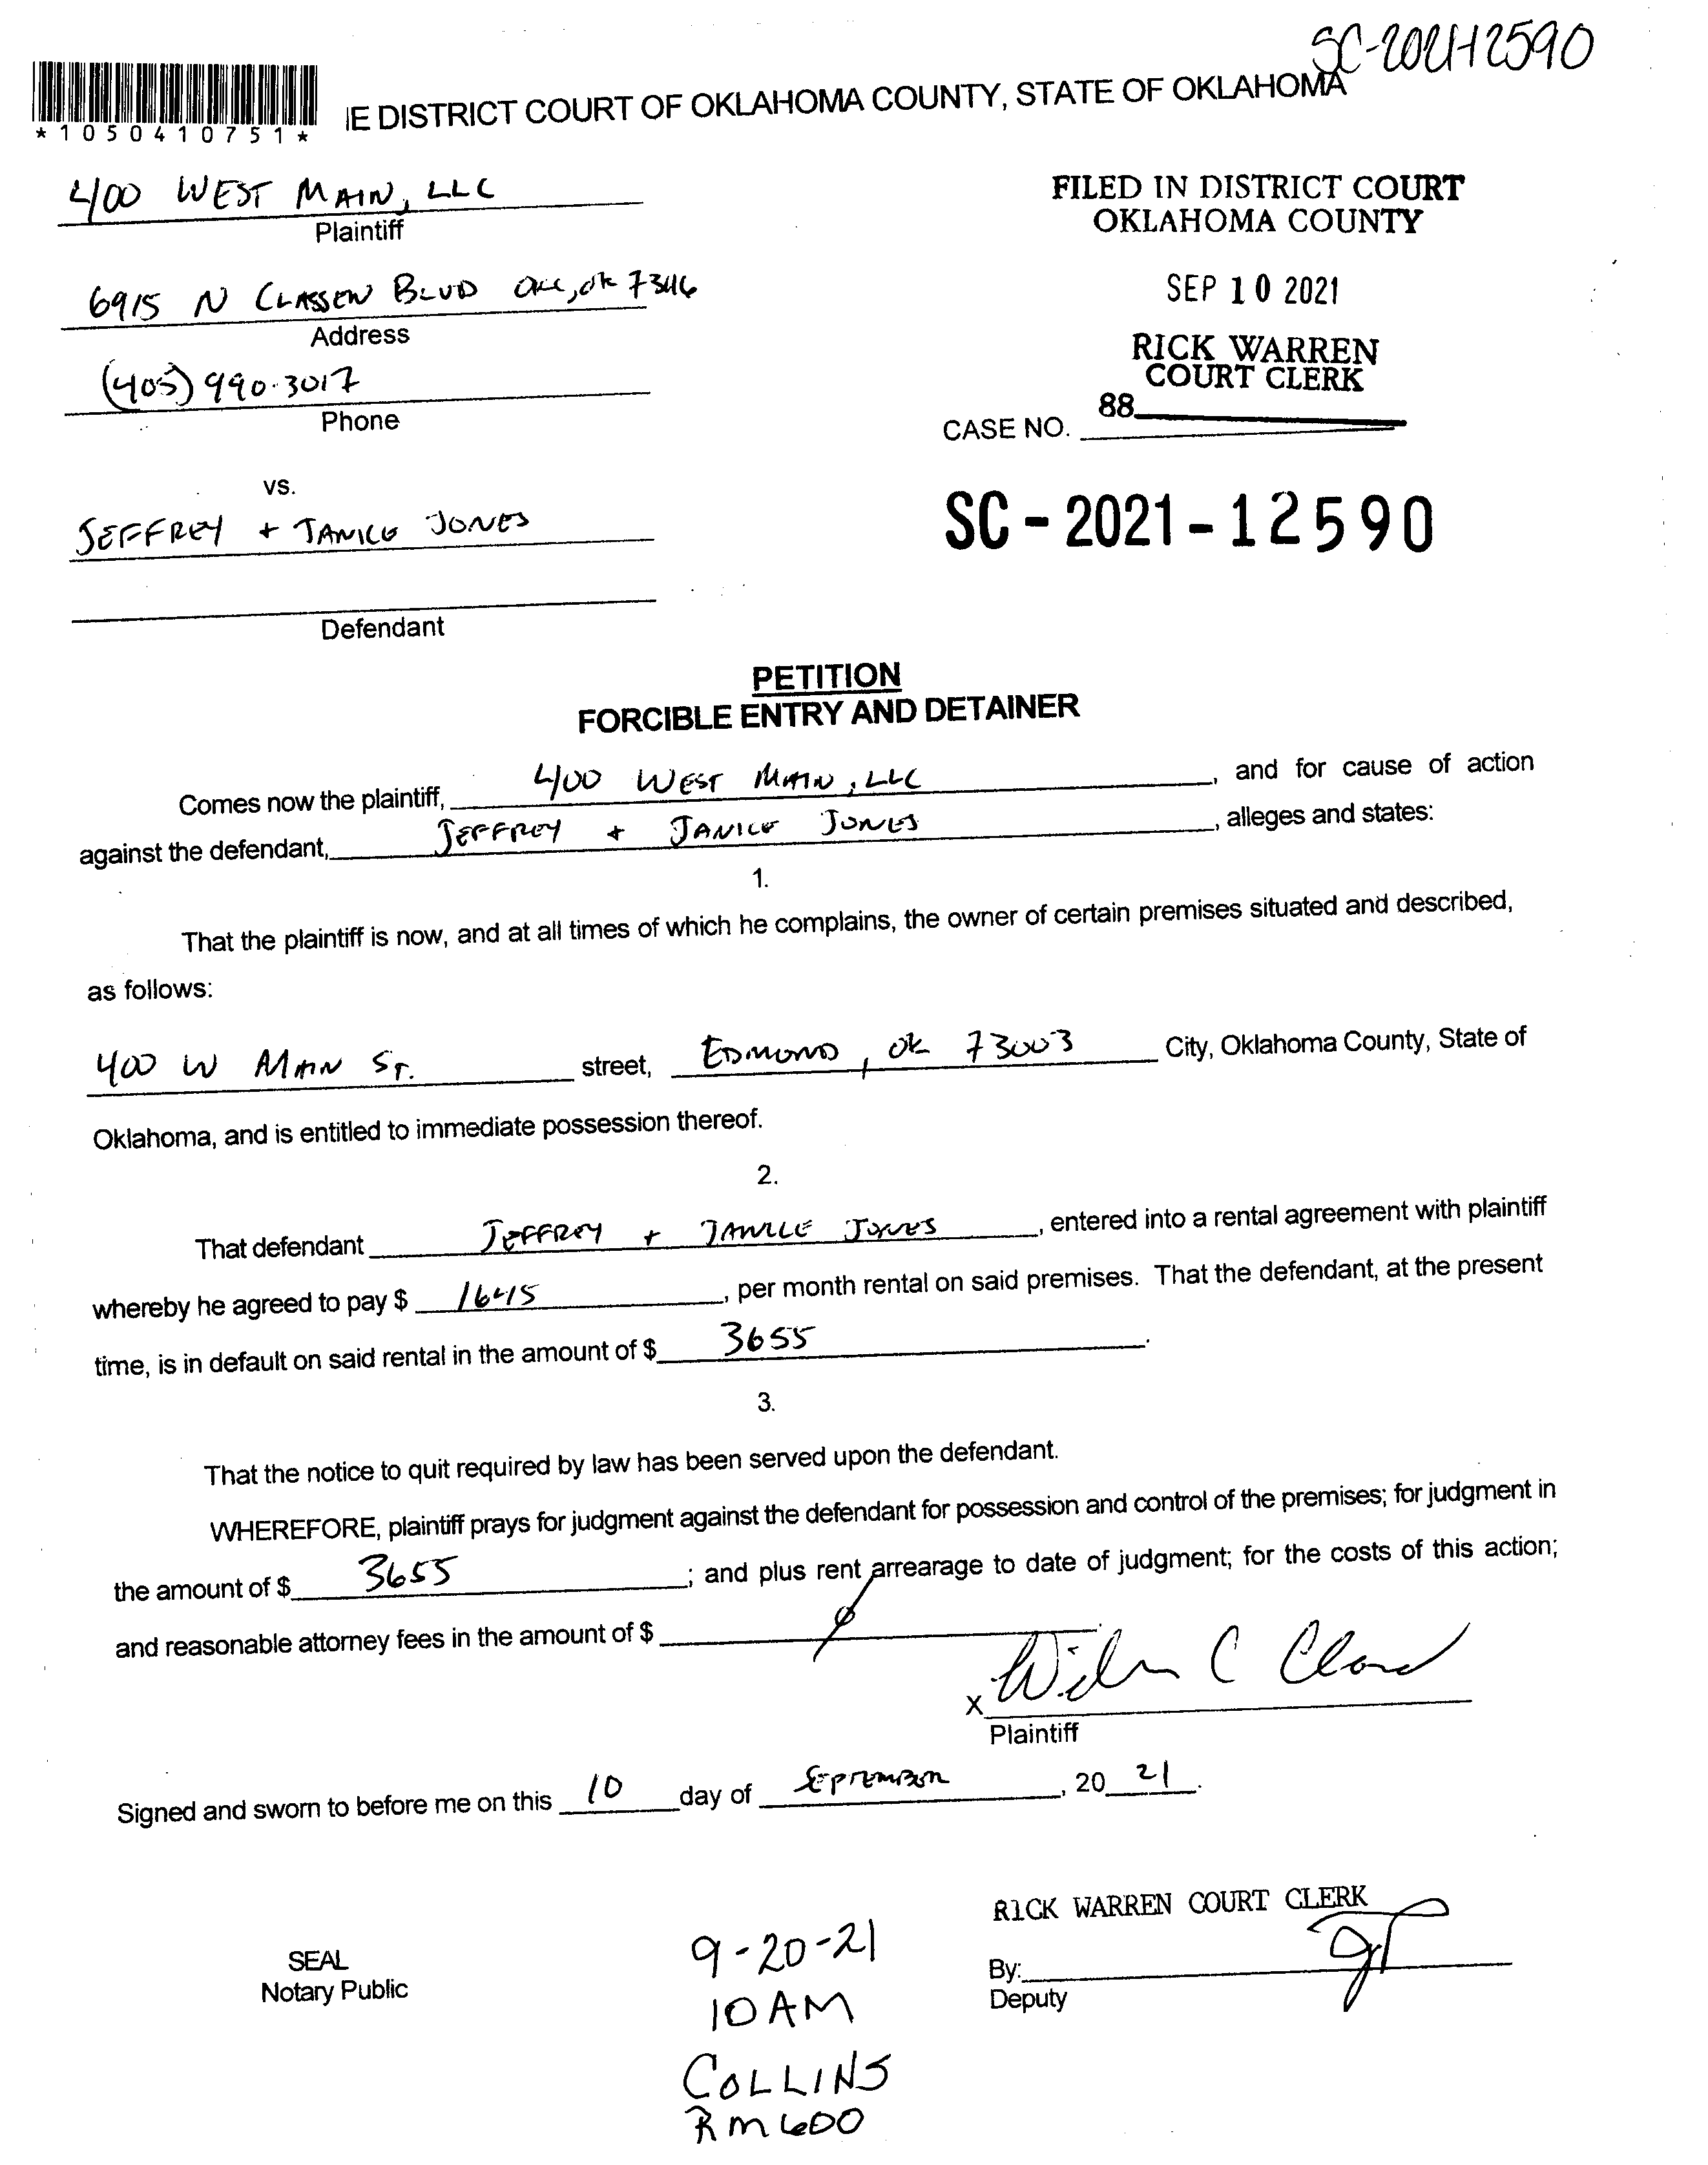 SC-2021-12590
*1050410751*
IE DISTRICT COURT OF OKLAHOMA COUNTY, STATE OF OKLAHOMA
400 WEST MAIN, LLC
Plaintiff
6915 N CLASSEN BLVD OKC, OK 73116
Address
(405) 990-3017
Phone
FILED IN DISTRICT COURT
OKLAHOMA COUNTY
SEP 10 2021
RICK WARREN
COURT CLERK
88
CASE NO.
SC-2021-12590
vs.
JEFFREY + JANICE JONES
Defendant
PETITION
FORCIBLE ENTRY AND DETAINER
Comes now the plaintiff, 400 WEST MAIN, LLC, and for cause of action
against the defendant, JEFFREY + JANICE JONES, alleges and states:
1.
That the plaintiff is now, and at all times of which he complains, the owner of certain premises situated and described,
as follows:
400 W MAIN ST. street, EDMOND, OK 73003 City, Oklahoma County, State of
Oklahoma, and is entitled to immediate possession thereof.
2.
That defendant JEFFREY + JANICE JONES, entered into a rental agreement with plaintiff
whereby he agreed to pay $ 1645, per month rental on said premises. That the defendant, at the present
time, is in default on said rental in the amount of $ 3655.
3.
That the notice to quit required by law has been served upon the defendant.
WHEREFORE, plaintiff prays for judgment against the defendant for possession and control of the premises; for judgment in
the amount of $ 3655; and plus rent arrearage to date of judgment; for the costs of this action;
and reasonable attorney fees in the amount of $ ∅
X
Plaintiff
Signed and sworn to before me on this 10 day of SEPTEMBER, 20 21.
RICK WARREN COURT CLERK
SEAL
Notary Public
By:
Deputy
9-20-21
10 AM
COLLINS
RM 600